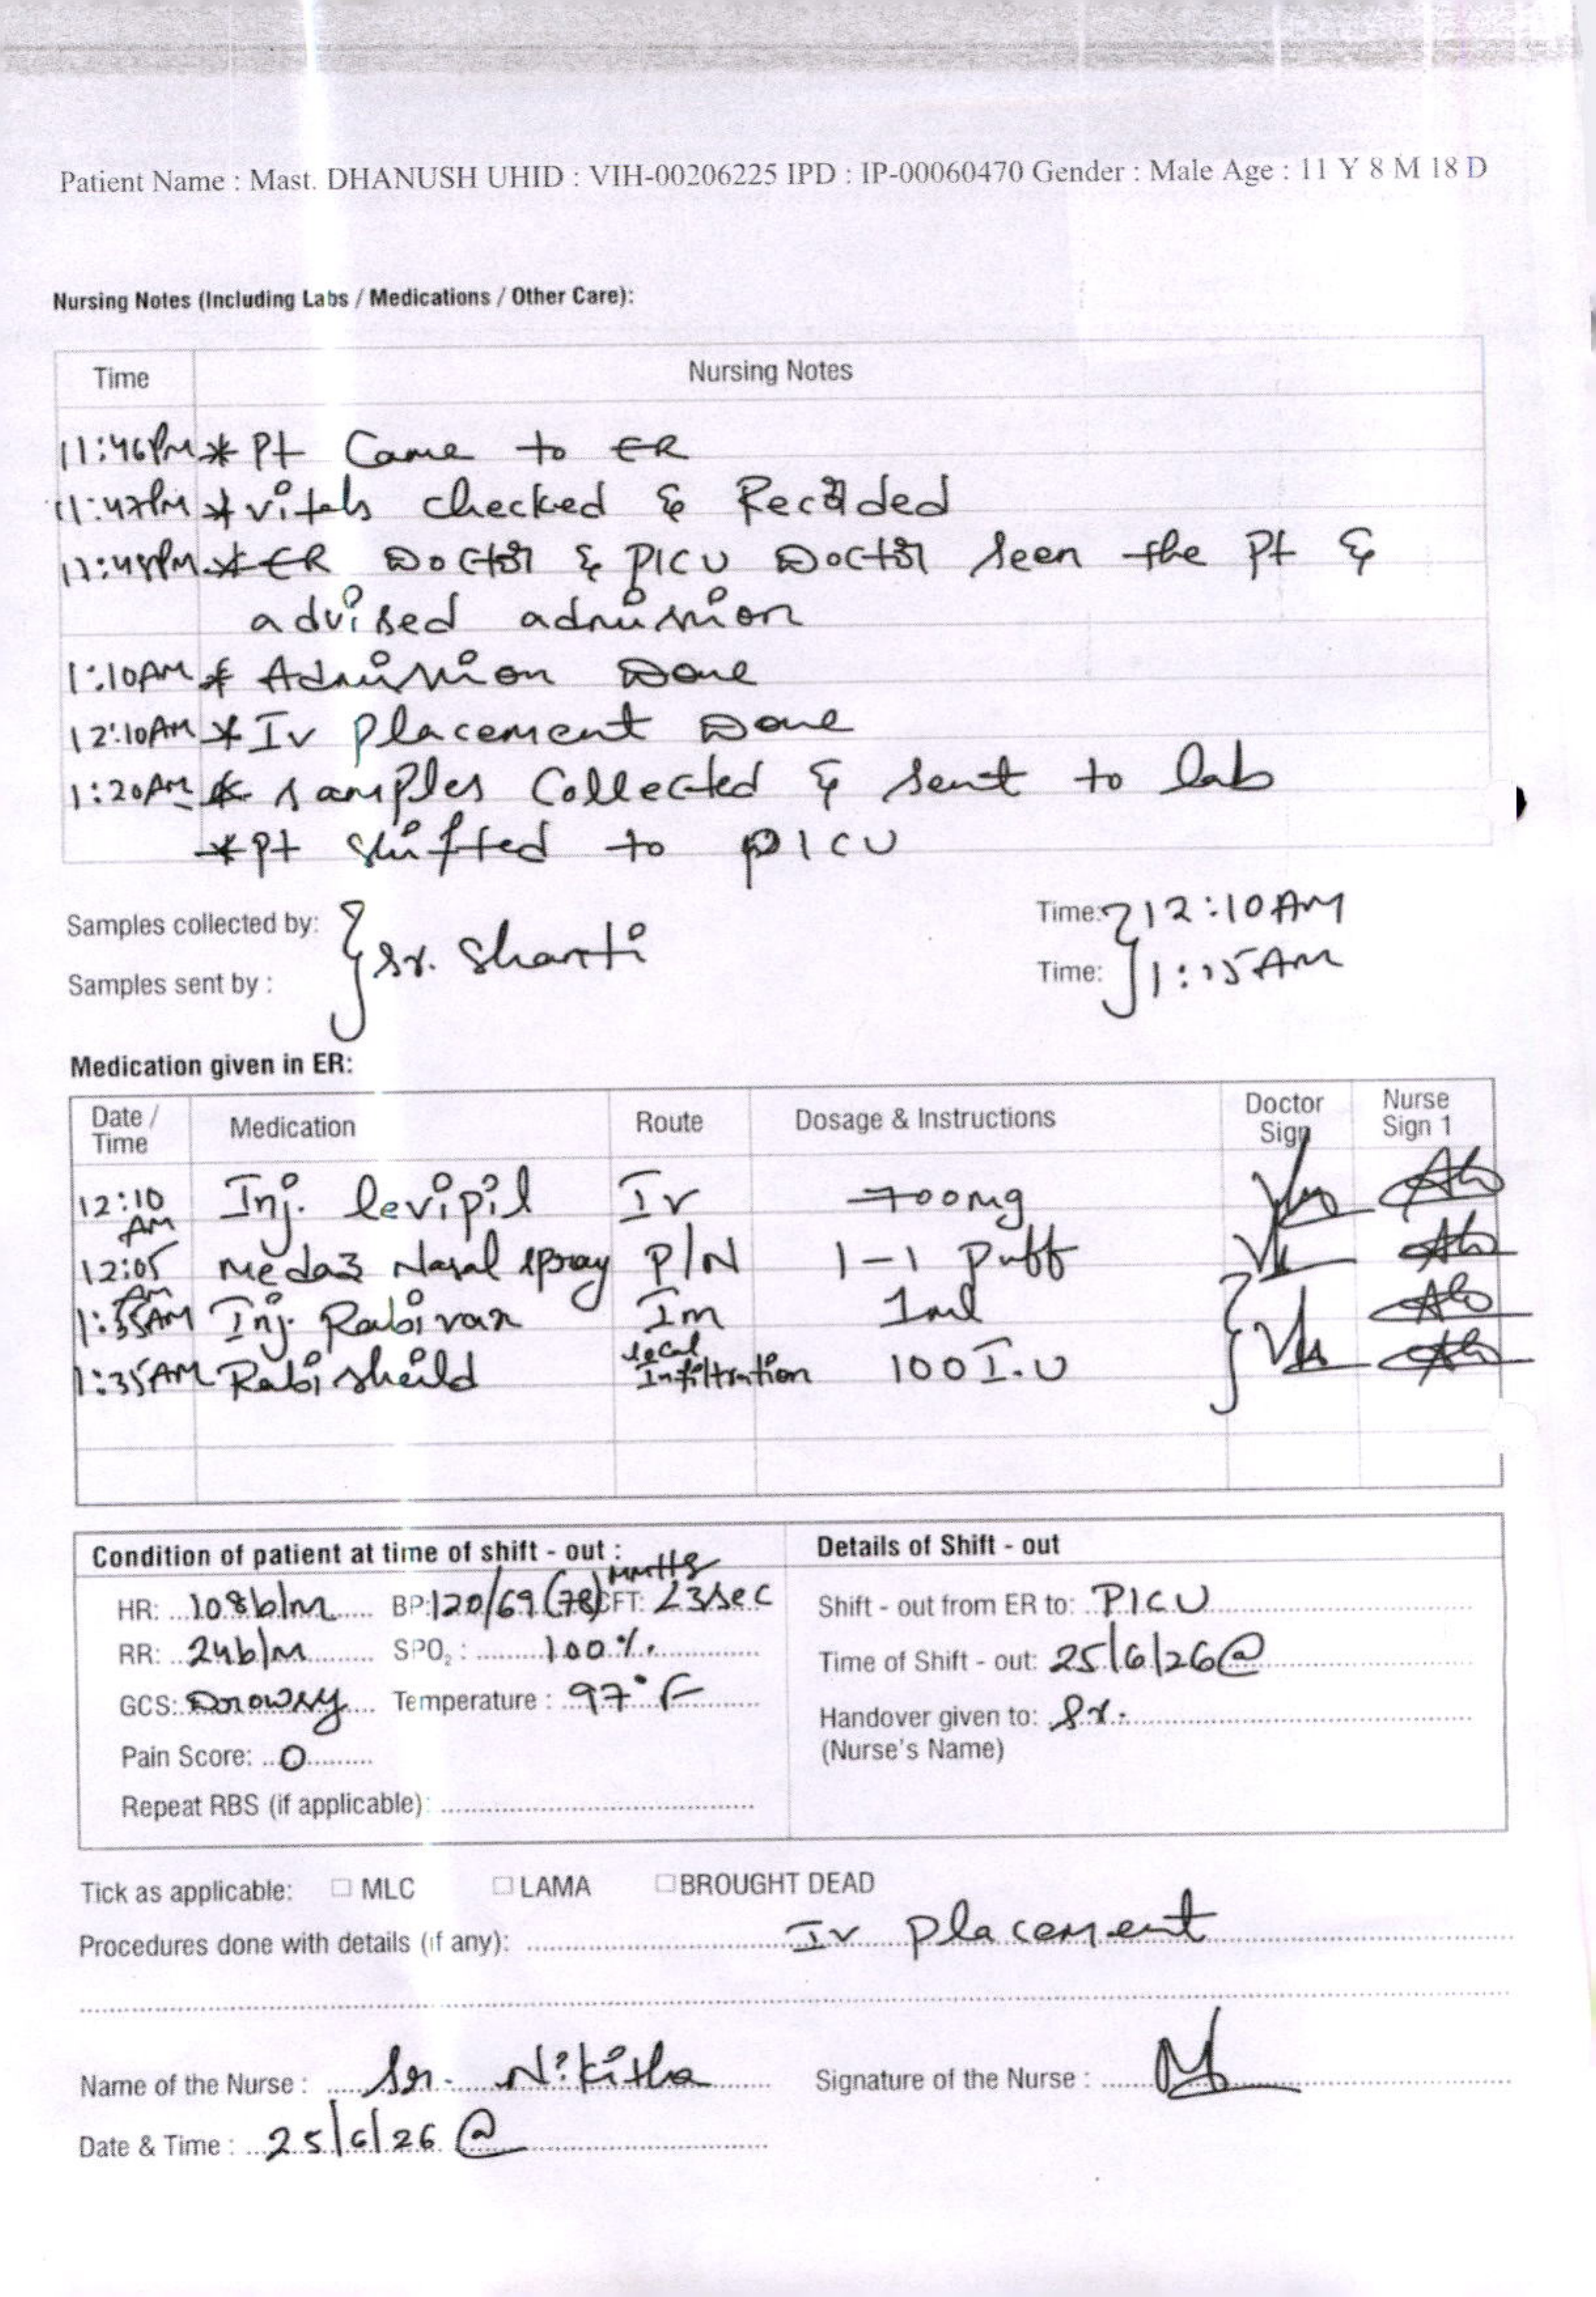 Patient Name : Mast. DHANUSH UHID : VIH-00206225 IPD : IP-00060470 Gender : Male Age : 11 Y 8 M 18 D
Nursing Notes (Including Labs / Medications / Other Care):
Time Nursing Notes
11:46PM * Pt Came to ER
11:47PM * vitals checked & Recorded
11:48PM * ER Doctor & PICU Doctor seen the Pt &
advised admission
1:10AM * Admission Done
12:10AM * Iv placement Done
1:20AM * samples Collected & sent to lab
* Pt shifted to PICU
Samples collected by: Time: 12:10AM
} Sr. Shanti
Samples sent by : Time: 1:15AM
Medication given in ER:
Date / Time Medication Route Dosage & Instructions Doctor Sign Nurse Sign 1
12:10 AM Inj. levipil Iv 700mg
12:05 AM Medaz Nasal spray P/N 1-1 puff
1:35AM Inj. Rabivax Im 1ml
1:35AM Rabisheild local Infiltration 100 I.U
Condition of patient at time of shift - out : Details of Shift - out
HR: 108b/m BP: 120/69 (78) mmHg CFT: <3sec Shift - out from ER to: PICU
RR: 24b/m SPO₂ : 100% Time of Shift - out: 25/6/26 @
GCS: Drowsy Temperature : 97°F Handover given to: Sr.
Pain Score: 0 (Nurse's Name)
Repeat RBS (if applicable):
Tick as applicable: ☐ MLC ☐ LAMA ☐ BROUGHT DEAD
Procedures done with details (if any): Iv placement
Name of the Nurse : Sr. Nikitha Signature of the Nurse :
Date & Time : 25/6/26 @